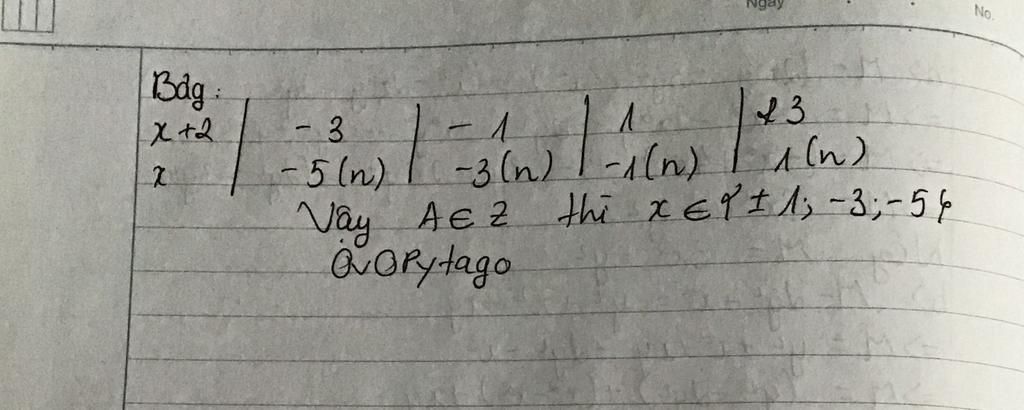 Ngày No.
Bdg:
x+2 | -3 | -1 | 1 | 3
x | -5(n) | -3(n) | -1(n) | 1(n)
Vậy A ∈ Z thì x ∈ { ± 1; -3; -5 }
Pytago